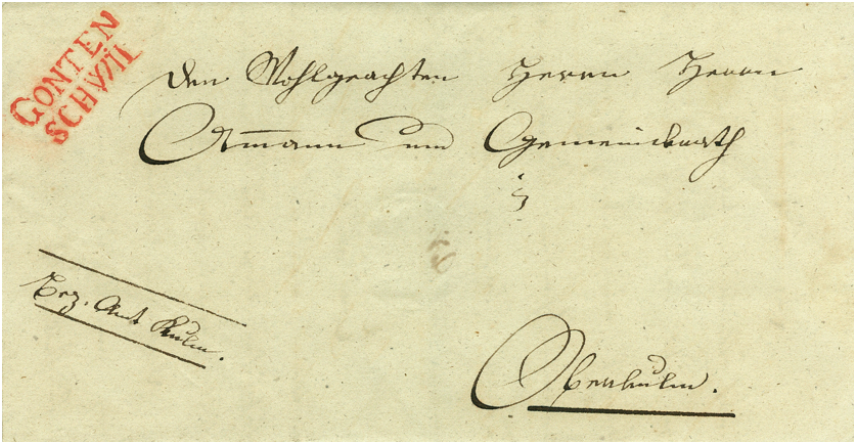 GONTEN
SCHWIL
Den Wohlgeachten Herren Herren
Ammann und Gemeindrath
in
Bez. Amt Kulm.
Oberkulm.